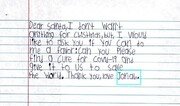 Dear santa, I don't want
anything for Christmas, but I would
like to ask you if you can do
me a favor: can you Please
find a cure for covid-19 and
give it to us to save
the World. Thank you, love Jonah.